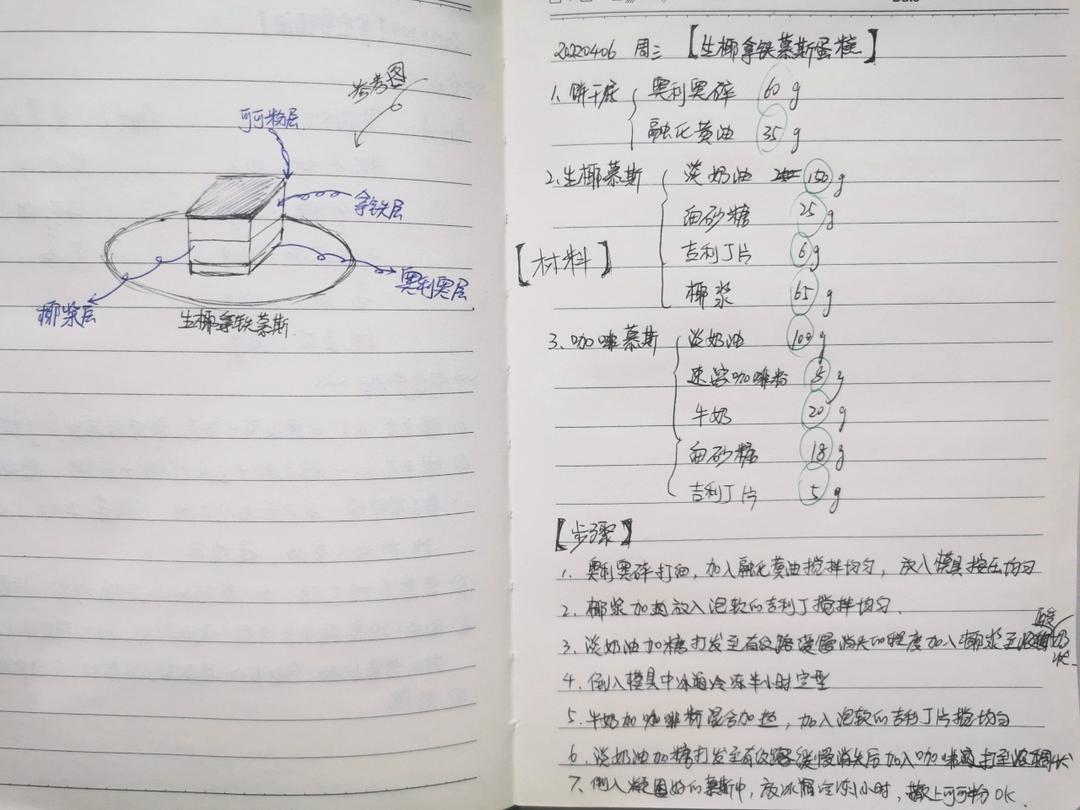 参考图
可可粉层
拿铁层
奥利奥层
椰浆层
生椰拿铁慕斯
20220406 周三 【生椰拿铁慕斯蛋糕】
1、饼干底 奥利奥碎 60 g
融化黄油 35 g
2.生椰慕斯 淡奶油 150 g
白砂糖 25 g
【材料】
吉利丁片 6 g
椰浆 65 g
3、咖啡慕斯 淡奶油 100 g
速溶咖啡粉 5 g
牛奶 20 g
白砂糖 18 g
吉利丁片 5 g
【步骤】
1. 奥利奥碎打面，加入融化黄油搅拌均匀，放入模具按压均匀
2. 椰浆加热放入泡软的吉利丁搅拌均匀.
3. 淡奶油加糖打发至有纹路缓慢消失的程度加入椰浆至酸奶状.
4. 倒入模具中冰箱冷冻半小时定型
5. 牛奶加咖啡粉混合加热，加入泡软的吉利丁片搅均匀
6. 淡奶油加糖打发至有纹路缓慢消失后加入咖啡液打至浓稠状
7. 倒入凝固好的慕斯中，放冰箱冷冻1小时，撒上可可粉OK.